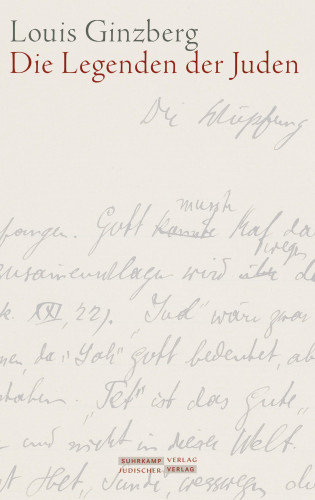 Louis Ginzberg
Die Legenden der Juden
Die Schöpfung
musste
fangen. Gott konnte Kaf da
wegen
zusammenschlagen wird über de
k. XXI, 22). „Jud" wäre zwar
nen, da „Joh" Gott bedeutet, ab
staben. „Tet" ist das Gute,
und nicht in dieser Welt.
st Het, Sünde, weswegen de
SUHRKAMP VERLAG
JÜDISCHER VERLAG